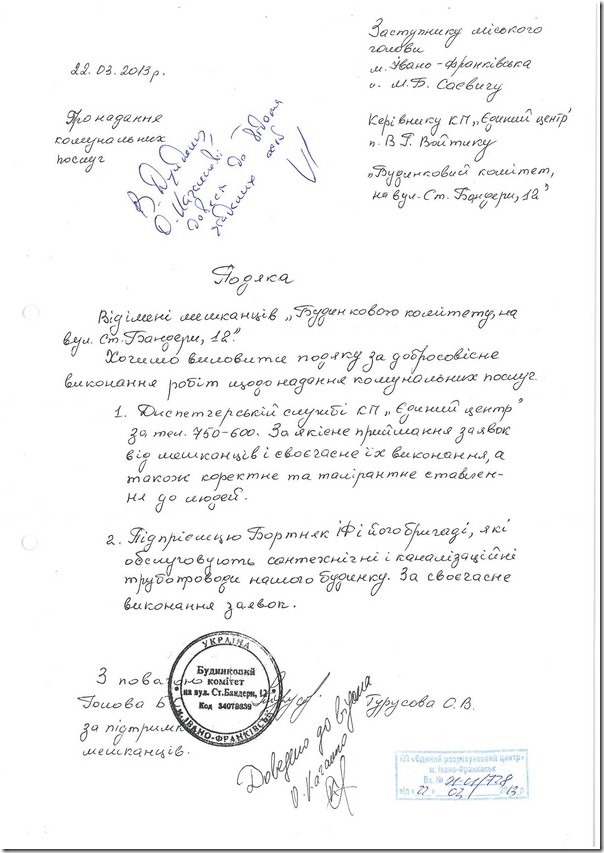 Заступнику міського
голови
м. Івано-Франківська
п. М.Б. Саєвичу
22.03.2013р.
Керівнику КП „Єдиний центр"
п. В.Г. Войтику
Про надання
комунальних
послуг
„Будинковий комітет,
на вул. Ст. Бандери, 12"
В.
О.
довести до відома
Подяка
Від імені мешканців „Будинкового комітету, на
вул. Ст. Бандери, 12".
Хочемо виловити подяку за добросовісне
виконання робіт щодо надання комунальних послуг.
1. Диспетчерській службі КП „Єдиний центр"
за тел. 750-600. За якісне приймання заявок
від мешканців і своєчасне їх виконання, а
також коректне та талірантне ставлен-
ня до людей.
2. Підприємцю Бортняк ІФ і його бригаді, які
обслуговують сантехнічні і каналізаційні
трубопроводи нашого будинку. За своєчасне
виконання заявок.
З повагою
Голова Б
Гурусова О.В.
за підтримк
мешканців.
УКРАЇНА
Будинковий
комітет
на вул. Ст.Бандери, 12
Код 34078839
м. ІВАНО-ФРАНКІВСЬК
Доведено до відома
О.
КП «Єдиний розрахунковий центр»
м. Івано-Франківськ
Вх. №
від « 22 » 03 2013 р.